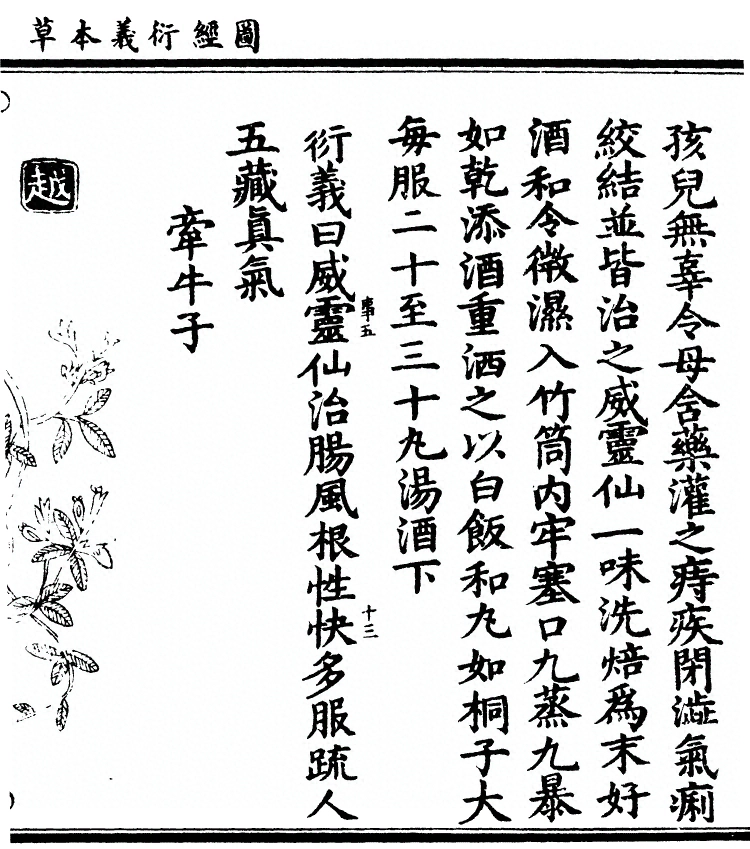 圖經衍義本草
孩兒無辜令母含藥灌之痔疾閉澁氣痢
絞結並皆治之威靈仙一味洗焙爲末好
酒和令微濕入竹筒内牢塞口九蒸九暴
如乾添酒重洒之以白飯和丸如桐子大
每服二十至三十丸湯酒下
衍義曰威靈仙治腸風根性快多服疏人
五藏眞氣
牽牛子
越
十三